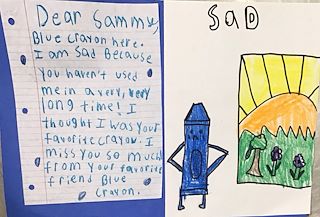 Dear Sammy,
Blue Crayon here.
I am Sad Because
you haven't used
me in a very, very
long time! I
thought I was your
favorite crayon. I
miss you so much
from your favorite
friend Blue
Crayon.
SaD